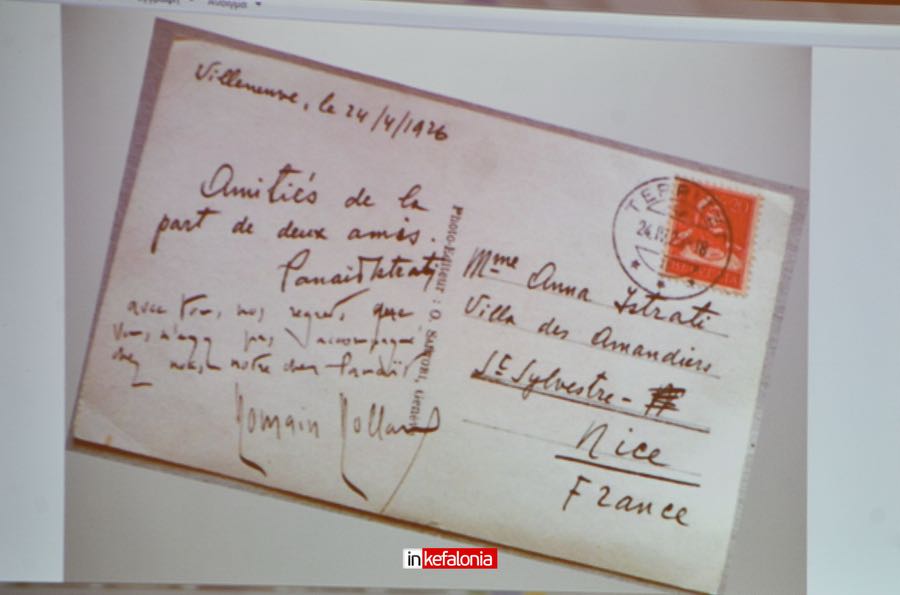 Villeneuve, le 24/4/1926
Amitiés de la
part de deux amis.
Panait Istrati
avec tous nos regrets que
vous n'ayez pas accompagné
chez nous notre cher Panaït
Romain Rolland
Photo-Editeur : O. SARTORI, Genève
TERRITET
24.IV. 18
20
HELVETIA
Mme Anna Istrati
Villa des Amandiers
St Sylvestre -
Nice
France
inkefalonia